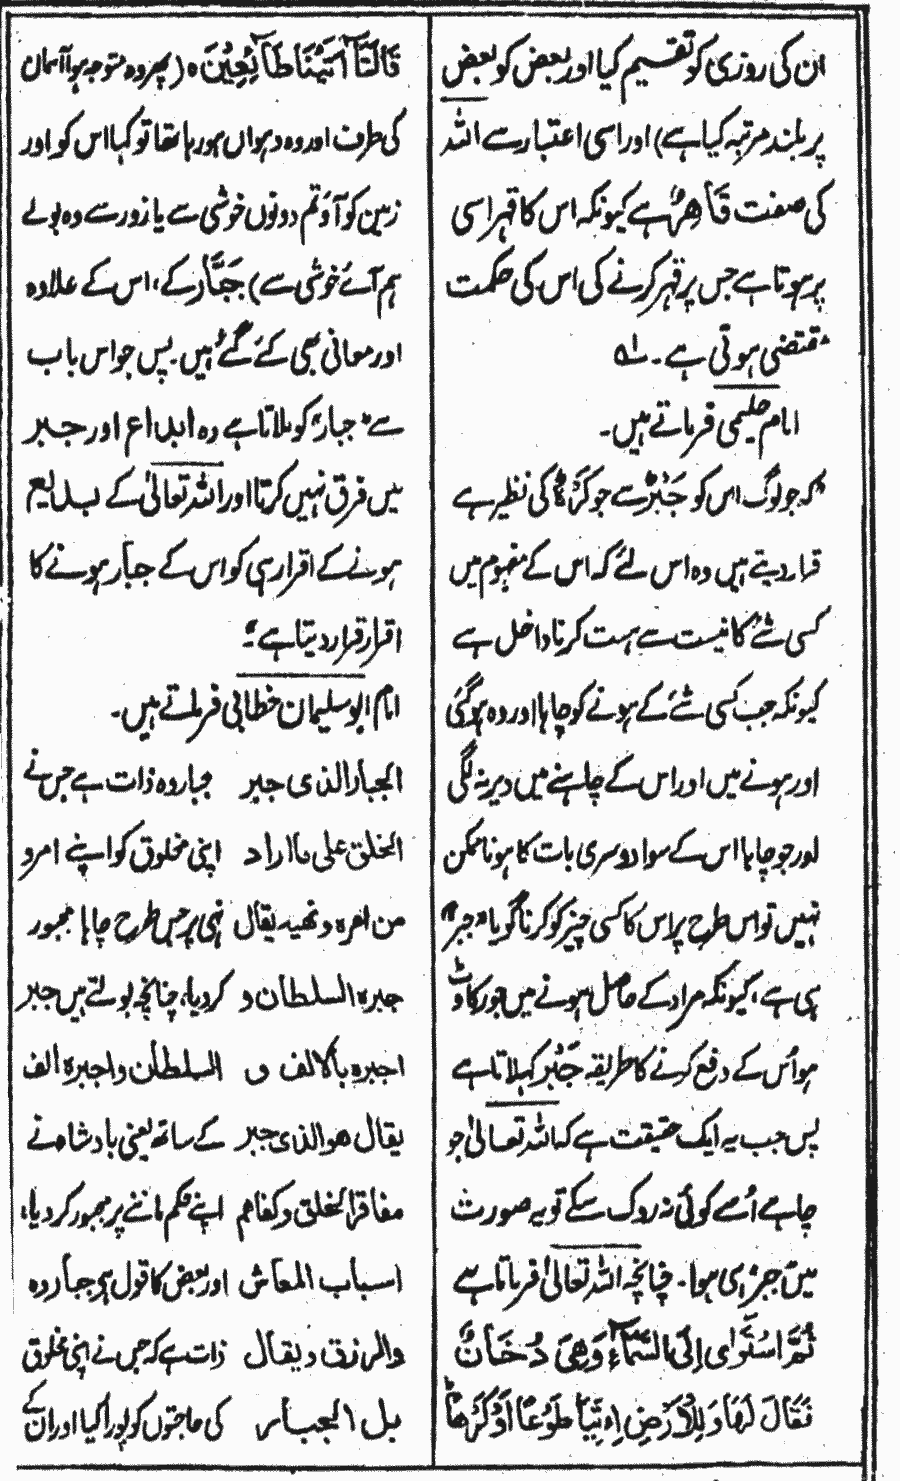 ان کی روزی کو تقسیم کیا اور بعض کو بعض
پر بلند مرتبہ کیا ہے) اور اسی اعتبار سے اللہ
کی صفت قَاھِرٌ ہے کیونکہ اس کا قہر اسی
پر ہوتا ہے جس پر قہر کرنے کی اس کی حکمت
مقتضی ہوتی ہے۔ لہ
امام حلیمی فرماتے ہیں۔
"کہ جو لوگ اس کو جَبْرٌ سے جو کَرْہٌ کی نظیر ہے
قرار دیتے ہیں وہ اس لئے کہ اس کے مفہوم میں
کسی شے کا نیست سے ہست کرنا داخل ہے
کیونکہ جب کسی شے کے ہونے کو چاہا اور وہ ہو گئی
اور ہونے میں اور اس کے چاہنے میں دیر نہ لگی
اور جو چاہا اس کے سوا دوسری بات کا ہونا ممکن
نہیں تو اس طرح پر اس کا کسی چیز کو کرنا گویا "جبر"
ہی ہے، کیونکہ مراد کے حاصل ہونے میں جو رکاوٹ
ہو اُس کے دفع کرنے کا طریقہ جَبْر کہلاتا ہے
پس جب یہ ایک حقیقت ہے کہ اللہ تعالیٰ جو
چاہے اُسے کوئی نہ روک سکے تو یہ صورت
میں جبر ہی ہوا۔ چنانچہ اللہ تعالیٰ فرماتا ہے
ثُمَّ اسْتَوَى إِلَى السَّمَآءِ وَهِيَ دُخَانٌ
فَقَالَ لَهَا وَلِلْأَرْضِ ائْتِيَا طَوْعًا أَوْ كَرْهًا
قَالَتَآ أَتَيْنَا طَآئِعِيْنَ ہ (پھر وہ متوجہ ہوا آسمان
کی طرف اور وہ دہواں ہو رہا تھا تو کہا اس کو اور
زمین کو آؤ تم دونوں خوشی سے یا زور سے وہ بولے
ہم آئے خوشی سے) جَبَّار کے، اس کے علاوہ
اور معانی بھی کئے گئے ہیں۔ پس جو اس باب
سے "جبار" کو ملاتا ہے وہ ابداع اور جبر
میں فرق نہیں کرتا اور اللہ تعالیٰ کے بدیع
ہونے کے اقرار ہی کو اس کے جبار ہونے کا
اقرار قرار دیتا ہے "۔
امام ابو سلیمان خطابی فرماتے ہیں۔
الجبار الذی جبر جبار وہ ذات ہے جس نے
الخلق علی ما اراد اپنی مخلوق کو اپنے امر و
من امرہ و نھیہ یقال نہی پر جس طرح چاہا مجبور
جبرہ السلطان و کر دیا، چنانچہ بولتے ہیں جبر
اجبرہ بالالف و السلطان و اجبرہ الف
یقال ھو الذی جبر کے ساتھ یعنی بادشاہ نے
مفاقر الخلق و کفاھم اپنے حکم ماننے پر مجبور کر دیا،
اسباب المعاش اور بعض کا قول ہی جبار وہ
والرزق و یقال ذات ہے کہ جس نے اپنی مخلوق
بل الجبار کی حاجتوں کو پورا کیا اور ان کے